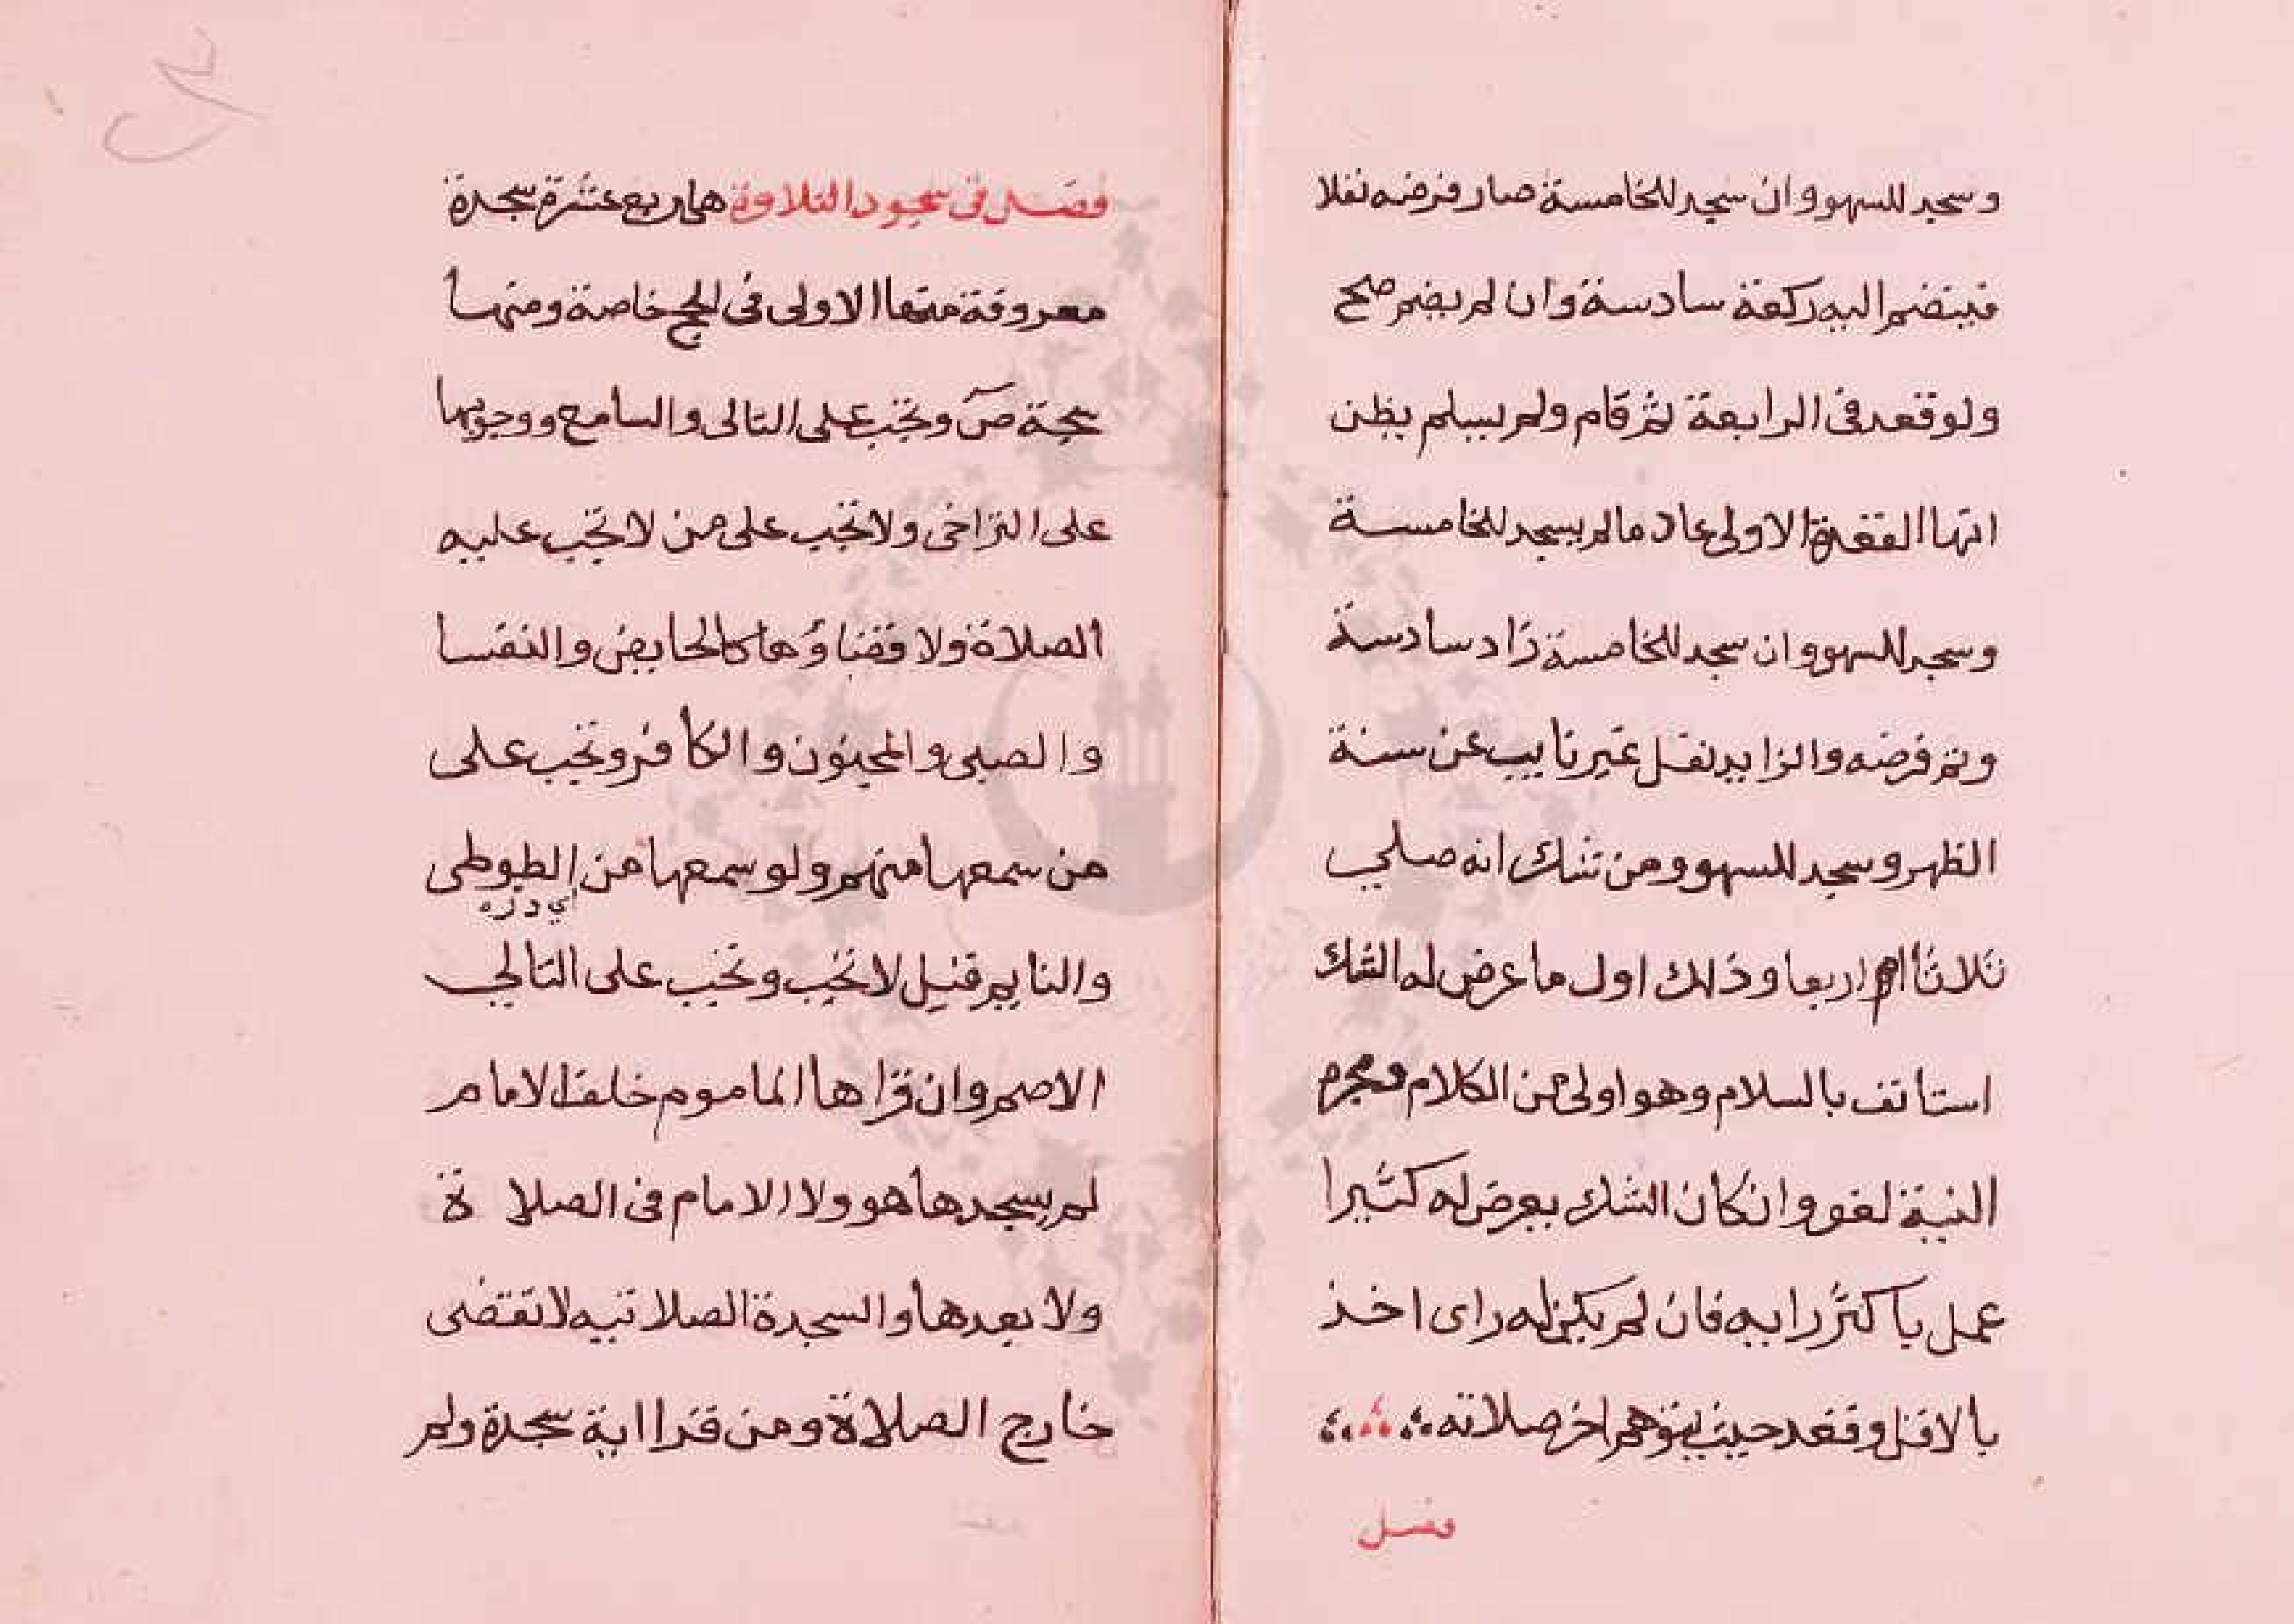 وسجد للسهو وان سجد للخامسة صار فرضه نفلا
فيضم اليه ركعة سادسة وان لم يضم صح
ولو قعد فى الرابعة ثم قام ولم يسلم يظن
انها القعدة الاولى عاد مالم يسجد للخامسة
وسجد للسهو وان سجد للخامسة زاد سادسة
وتم فرضه والزايد نفل غير نايب عن سنة
الظهر وسجد للسهو ومن شك انه صلي
ثلاثا ام اربعا وذلك اول ما عرض له الشك
استانف بالسلام وهو اولى من الكلام ومجرم
النية لغو وان كان الشك يعرض له كثيرا
عمل باكثر رايه فان لم يكن له راى اخذ
بالاقل وقعد حيث يتوهم اخر صلاته
فصل
فصل فى سجود التلاوة هى اربع عشرة سجدة
معروفة منها الاولى فى الحج خاصة ومنها
سجدة ص وتجب على التالى والسامع ووجوبها
على التراخى ولا تجب على من لا تجب عليه
الصلاة ولا قضاؤها كالحايض والنفسا
والصبى والمجنون والكافر وتجب على
من سمعها منهم ولو سمعها من الطوطى
اي دره
والنايم قيل لا تجب وتجب على التالي
الاصم وان قراها الماموم خلف الامام
لم يسجدها هو ولا الامام فى الصلاة
ولا بعدها والسجدة الصلاتيه لا تقضى
خارج الصلاة ومن قرا اية سجدة ولم